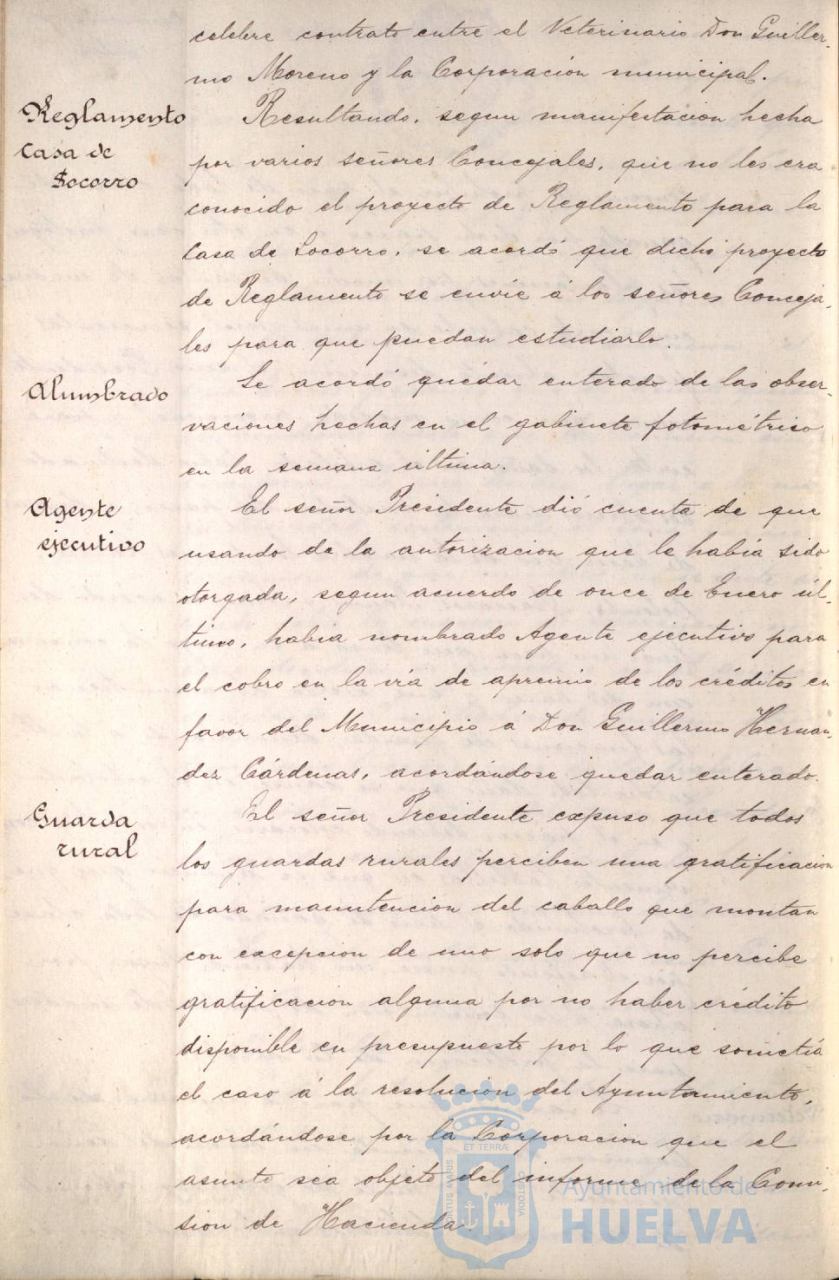 celebre contrato entre el Veterinario Don Guiller-
mo Moreno y la Corporacion municipal.
Reglamento
Casa de
Socorro
Resultando, segun manifestacion hecha
por varios señores Concejales, que no les era
conocido el proyecto de Reglamento para la
Casa de Socorro, se acordó que dicho proyecto
de Reglamento se envie á los señores Conceja-
les para que puedan estudiarlo.
Alumbrado
Se acordó quedar enterado de las obser-
vaciones hechas en el gabinete fotométrico
en la semana última.
Agente
ejecutivo
El señor Presidente dió cuenta de que
usando de la autorizacion que le habia sido
otorgada, segun acuerdo de once de Enero úl-
timo, habia nombrado Agente ejecutivo para
el cobro en la via de apremio de los créditos en
favor del Municipio á Don Guillermo Hernan-
dez Cárdenas, acordándose quedar enterado.
Guarda
rural
El señor Presidente expuso que todos
los guardas rurales perciben una gratificacion
para manutencion del caballo que montan
con excepcion de uno solo que no percibe
gratificacion alguna por no haber crédito
disponible en presupuesto por lo que sometia
el caso á la resolucion del Ayuntamiento,
acordándose por la Corporacion que el
asunto sea objeto del informe de la Comi-
sion de Hacienda.
ET TERRA
PORTUS MARIS
CUSTODIA
Ayuntamiento de
HUELVA